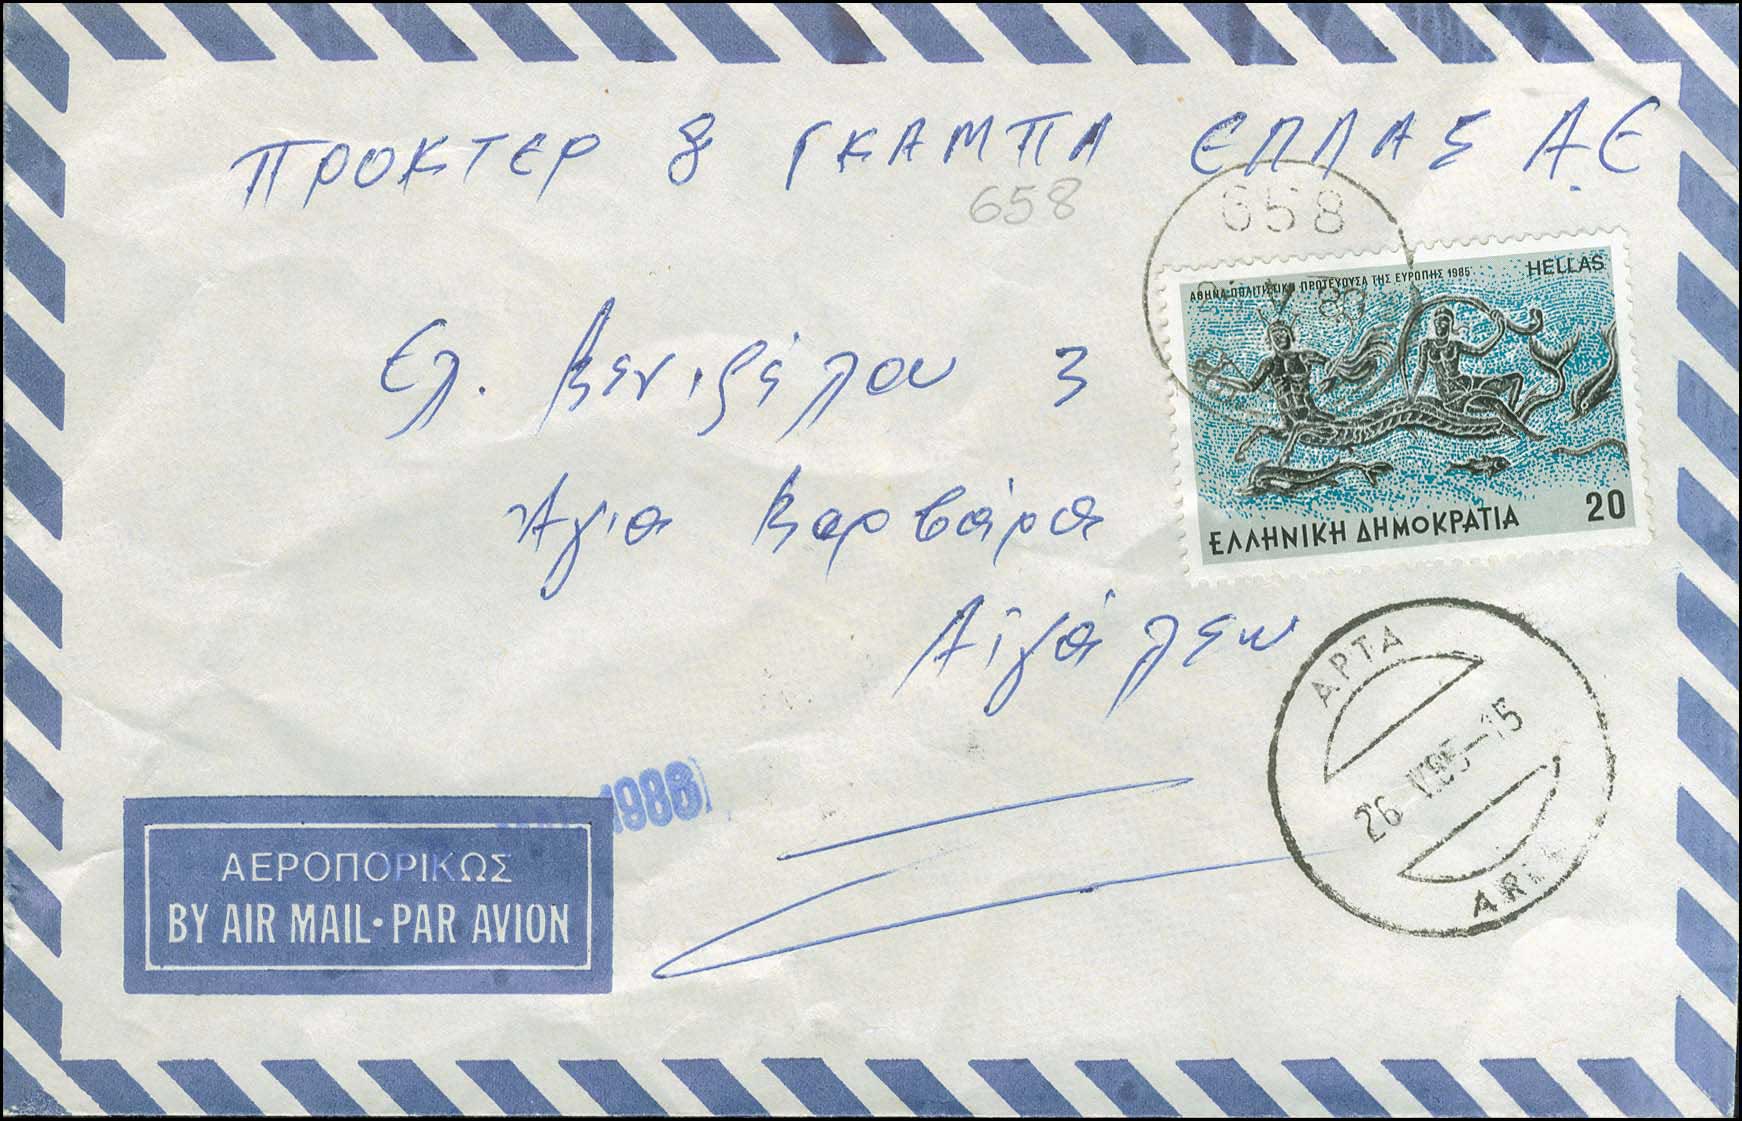 ΠΡΟΚΤΕΡ & ΓΚΑΜΠΛ ΕΛΛΑΣ Α.Ε
658
658
ΑΘΗΝΑ ΠΟΛΙΤΙΣΤΙΚΗ ΠΡΩΤΕΥΟΥΣΑ ΤΗΣ ΕΥΡΩΠΗΣ 1985
HELLAS
Ελ. Βενιζέλου 3
Αγία Βαρβάρα
ΕΛΛΗΝΙΚΗ ΔΗΜΟΚΡΑΤΙΑ 20
Αἰγάλεω
ΑΡΤΑ
26 VI.85-15
ARTA
ΑΕΡΟΠΟΡΙΚΩΣ
BY AIR MAIL · PAR AVION